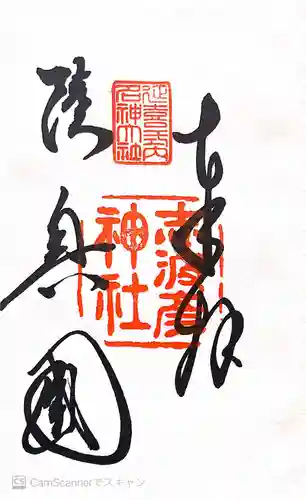 奉拝
陸奥国
延喜式内
名神大社
志波彦
神社
CS CamScannerでスキャン